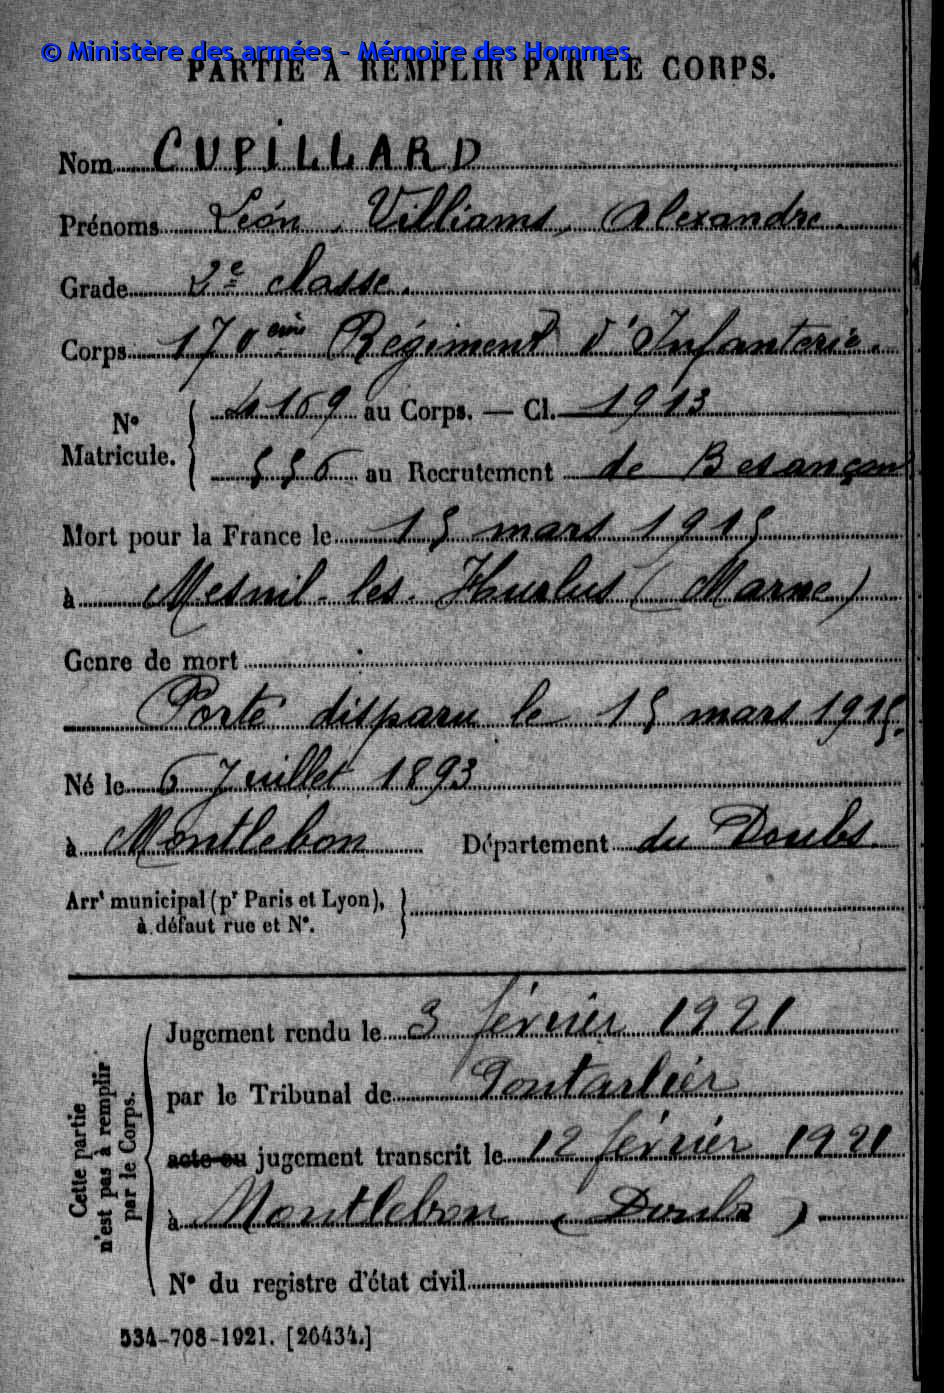 © Ministère des armées - Mémoire des Hommes
PARTIE À REMPLIR PAR LE CORPS.
Nom CUPILLARD
Prénoms Léon, Villiams, Alexandre.
Grade 2e classe.
Corps 170eme Régiment d'Infanterie.
N° Matricule. 4169 au Corps. — Cl. 1913
556 au Recrutement de Besançon
Mort pour la France le 15 mars 1915
à Mesnil-les-Hurlus (Marne)
Genre de mort
Porté disparu le 15 mars 1915.
Né le 6 Juillet 1893
à Montlebon Département du Doubs.
Arrt municipal (pr Paris et Lyon),
à défaut rue et N°.
Cette partie n'est pas à remplir par le Corps.
Jugement rendu le 3 février 1921
par le Tribunal de Pontarlier
acte ou jugement transcrit le 12 février 1921
à Montlebon (Doubs)
N° du registre d'état civil
534-708-1921. [26434.]